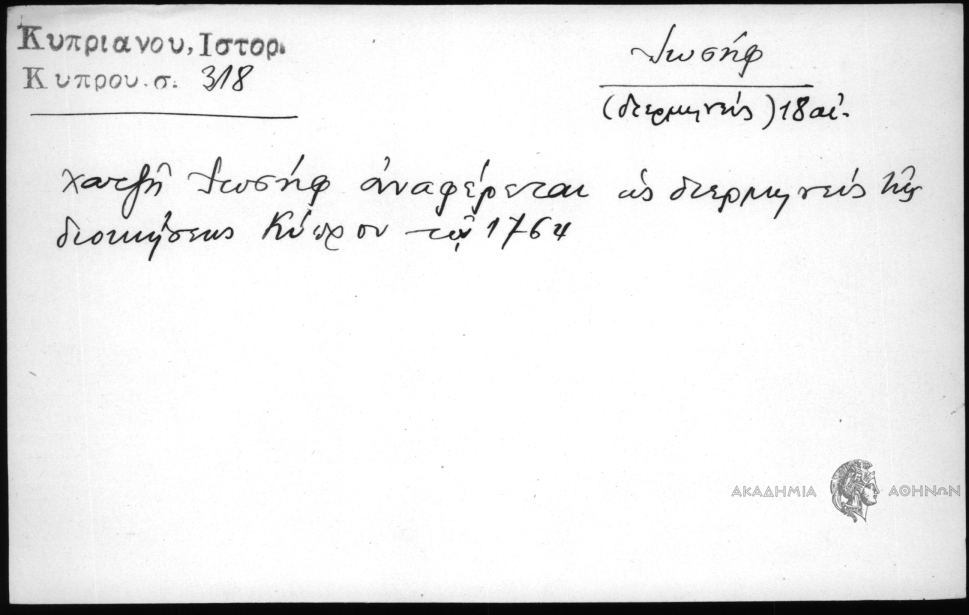 Κυπριανου, Ιστορ.
Κυπρου. σ. 318
Ἰωσήφ
(διερμηνεύς) 18 αἰ.
χατζῆ Ἰωσήφ ἀναφέρεται ὡς διερμηνεύς τῆς
διοικήσεως Κύπρου τῷ 1764
ΑΚΑΔΗΜΙΑ ΑΘΗΝΩΝ